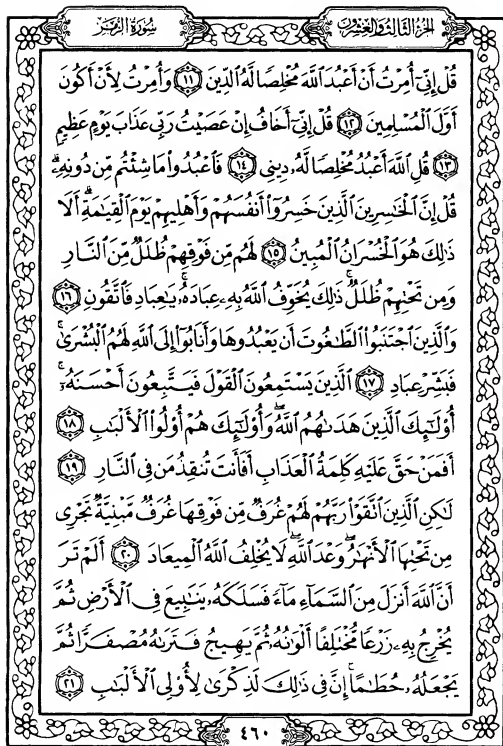 الجزء الثالث والعشرون
سورة الزمر
قُلْ إِنِّىٓ أُمِرْتُ أَنْ أَعْبُدَ ٱللَّهَ مُخْلِصًا لَّهُ ٱلدِّينَ ۝١١ وَأُمِرْتُ لِأَنْ أَكُونَ
أَوَّلَ ٱلْمُسْلِمِينَ ۝١٢ قُلْ إِنِّىٓ أَخَافُ إِنْ عَصَيْتُ رَبِّى عَذَابَ يَوْمٍ عَظِيمٍ
۝١٣ قُلِ ٱللَّهَ أَعْبُدُ مُخْلِصًا لَّهُۥ دِينِى ۝١٤ فَٱعْبُدُوا۟ مَا شِئْتُم مِّن دُونِهِۦ ۗ
قُلْ إِنَّ ٱلْخَـٰسِرِينَ ٱلَّذِينَ خَسِرُوٓا۟ أَنفُسَهُمْ وَأَهْلِيهِمْ يَوْمَ ٱلْقِيَـٰمَةِ ۗ أَلَا
ذَٰلِكَ هُوَ ٱلْخُسْرَانُ ٱلْمُبِينُ ۝١٥ لَهُم مِّن فَوْقِهِمْ ظُلَلٌ مِّنَ ٱلنَّارِ
وَمِن تَحْتِهِمْ ظُلَلٌ ۚ ذَٰلِكَ يُخَوِّفُ ٱللَّهُ بِهِۦ عِبَادَهُۥ ۚ يَـٰعِبَادِ فَٱتَّقُونِ ۝١٦
وَٱلَّذِينَ ٱجْتَنَبُوا۟ ٱلطَّـٰغُوتَ أَن يَعْبُدُوهَا وَأَنَابُوٓا۟ إِلَى ٱللَّهِ لَهُمُ ٱلْبُشْرَىٰ ۚ
فَبَشِّرْ عِبَادِ ۝١٧ ٱلَّذِينَ يَسْتَمِعُونَ ٱلْقَوْلَ فَيَتَّبِعُونَ أَحْسَنَهُۥٓ ۚ
أُو۟لَـٰٓئِكَ ٱلَّذِينَ هَدَىٰهُمُ ٱللَّهُ ۖ وَأُو۟لَـٰٓئِكَ هُمْ أُو۟لُوا۟ ٱلْأَلْبَـٰبِ ۝١٨
أَفَمَنْ حَقَّ عَلَيْهِ كَلِمَةُ ٱلْعَذَابِ أَفَأَنتَ تُنقِذُ مَن فِى ٱلنَّارِ ۝١٩
لَـٰكِنِ ٱلَّذِينَ ٱتَّقَوْا۟ رَبَّهُمْ لَهُمْ غُرَفٌ مِّن فَوْقِهَا غُرَفٌ مَّبْنِيَّةٌ تَجْرِى
مِن تَحْتِهَا ٱلْأَنْهَـٰرُ ۖ وَعْدَ ٱللَّهِ ۖ لَا يُخْلِفُ ٱللَّهُ ٱلْمِيعَادَ ۝٢٠ أَلَمْ تَرَ
أَنَّ ٱللَّهَ أَنزَلَ مِنَ ٱلسَّمَآءِ مَآءً فَسَلَكَهُۥ يَنَـٰبِيعَ فِى ٱلْأَرْضِ ثُمَّ
يُخْرِجُ بِهِۦ زَرْعًا مُّخْتَلِفًا أَلْوَٰنُهُۥ ثُمَّ يَهِيجُ فَتَرَىٰهُ مُصْفَرًّا ثُمَّ
يَجْعَلُهُۥ حُطَـٰمًا ۚ إِنَّ فِى ذَٰلِكَ لَذِكْرَىٰ لِأُو۟لِى ٱلْأَلْبَـٰبِ ۝٢١
٤٦٠